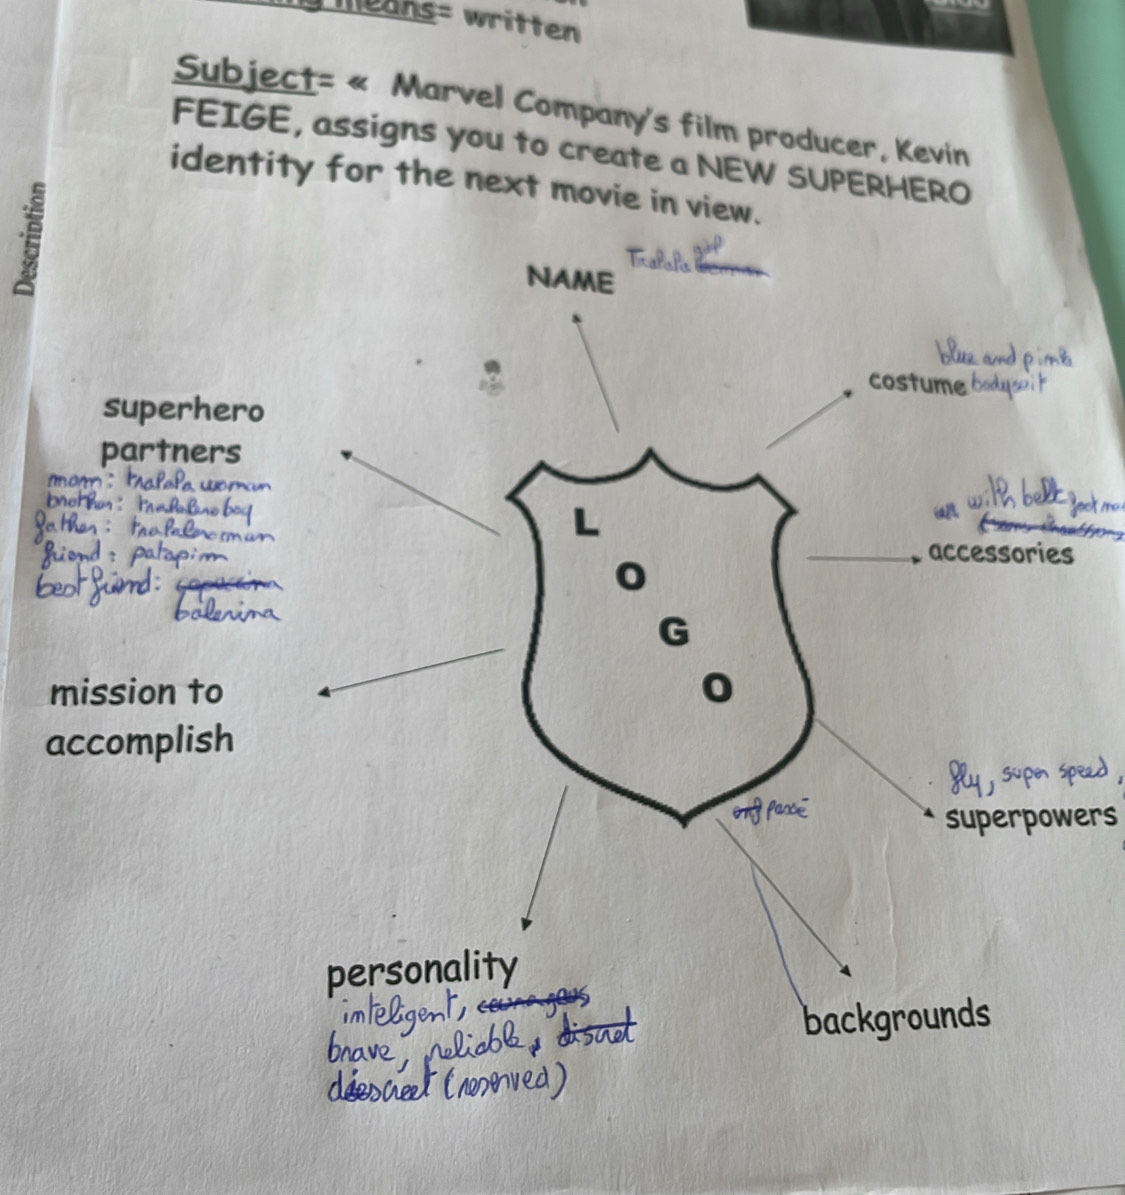 means= written
Subject= « Marvel Company's film producer, Kevin
FEIGE, assigns you to create a NEW SUPERHERO
identity for the next movie in view.
Description
Tralala girl
NAME
blue and pink
costume bodysuit
superhero
partners
mom: tralala woman
brother: tralalero boy
father: tralalero man
friend: patapim
best friend:
balerina
with belt
accessories
L
O
G
O
mission to
accomplish
fly, super speed,
superpowers
passé
personality
inteligent, courageous
brave, reliable, discret
discreet (reserved)
backgrounds